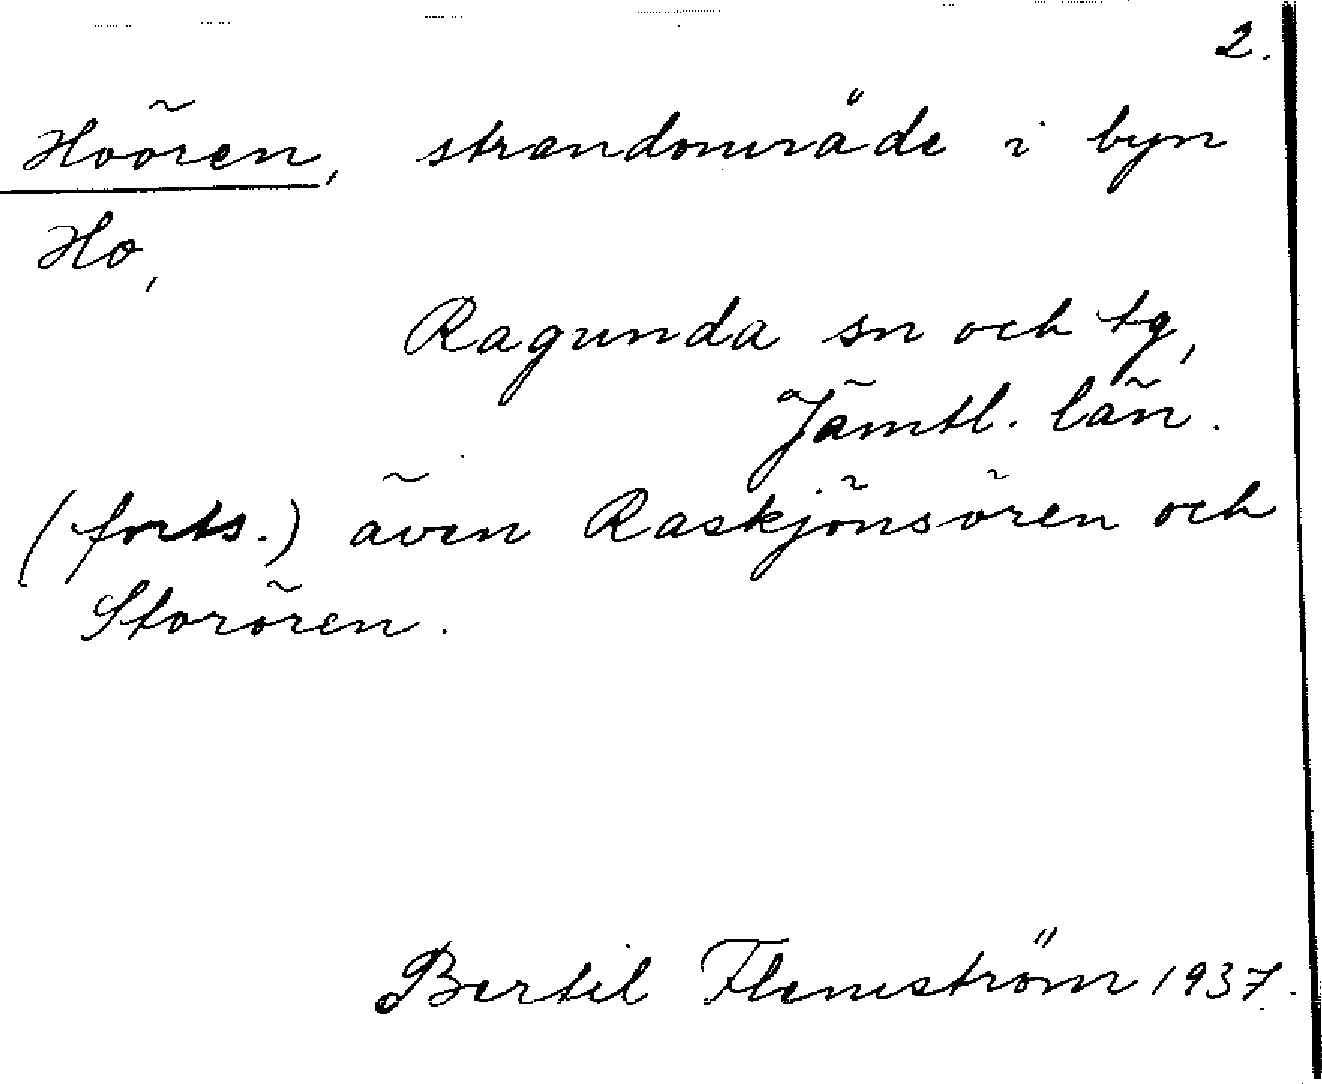 2.
Hoören, strandområde i byn
Ho,
Ragunda sn och tg,
Jämtl. län.
(forts.) även Raskjönsören och
Storören.
Bertil Flemström 1937.